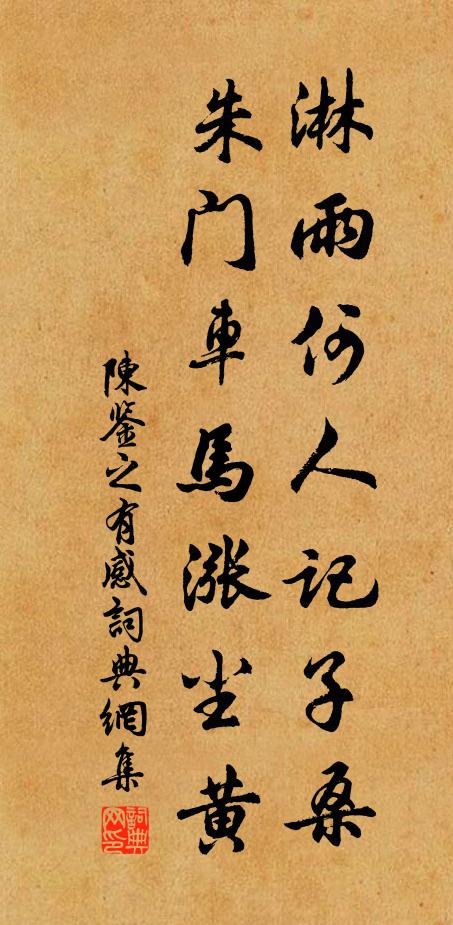 淋雨何人记子桑
朱门車馬漲尘黄
陳鉴之有感詞典網集
詞典网印